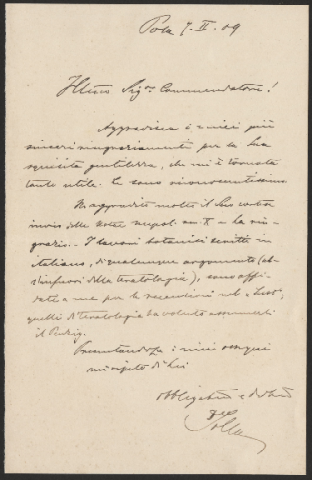 Pola 7. II. 09
Illmo Sigre Commendatore!
Aggradisca i miei più
sinceri ringraziamenti per la Sua
squisita gentilezza, che mi è tornata
tanto utile. Le sono riconoscentissimo.
M'aggradì molto il Suo
invio delle Notre ... La rin-
grazio. - I lavori botanici scritti in
italiano, di qualunque argomento (ab-
... della teratologia), sono affi-
dati a me per la recensione nel „Just";
quelli di teratologia ha voluto assumerli
il Penzig.
Presentandole i miei ossequi
mi ripeto di Lei
obbligatmo e devotmo
Solla